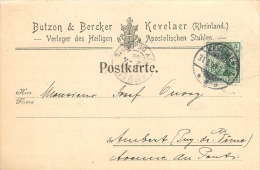 Butzon & Bercker Kevelaer (Rheinland.)
Verleger des Heiligen Apostolischen Stuhles.
Postkarte.
Herr
Firma
Monsieur Josef
Ambert (Puy de Dôme)
Avenue du Pont